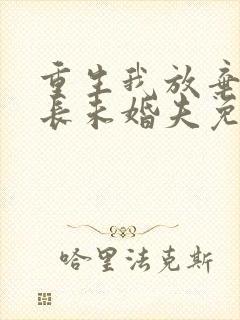 重生我放弃
长未婚夫免
哈里法克斯